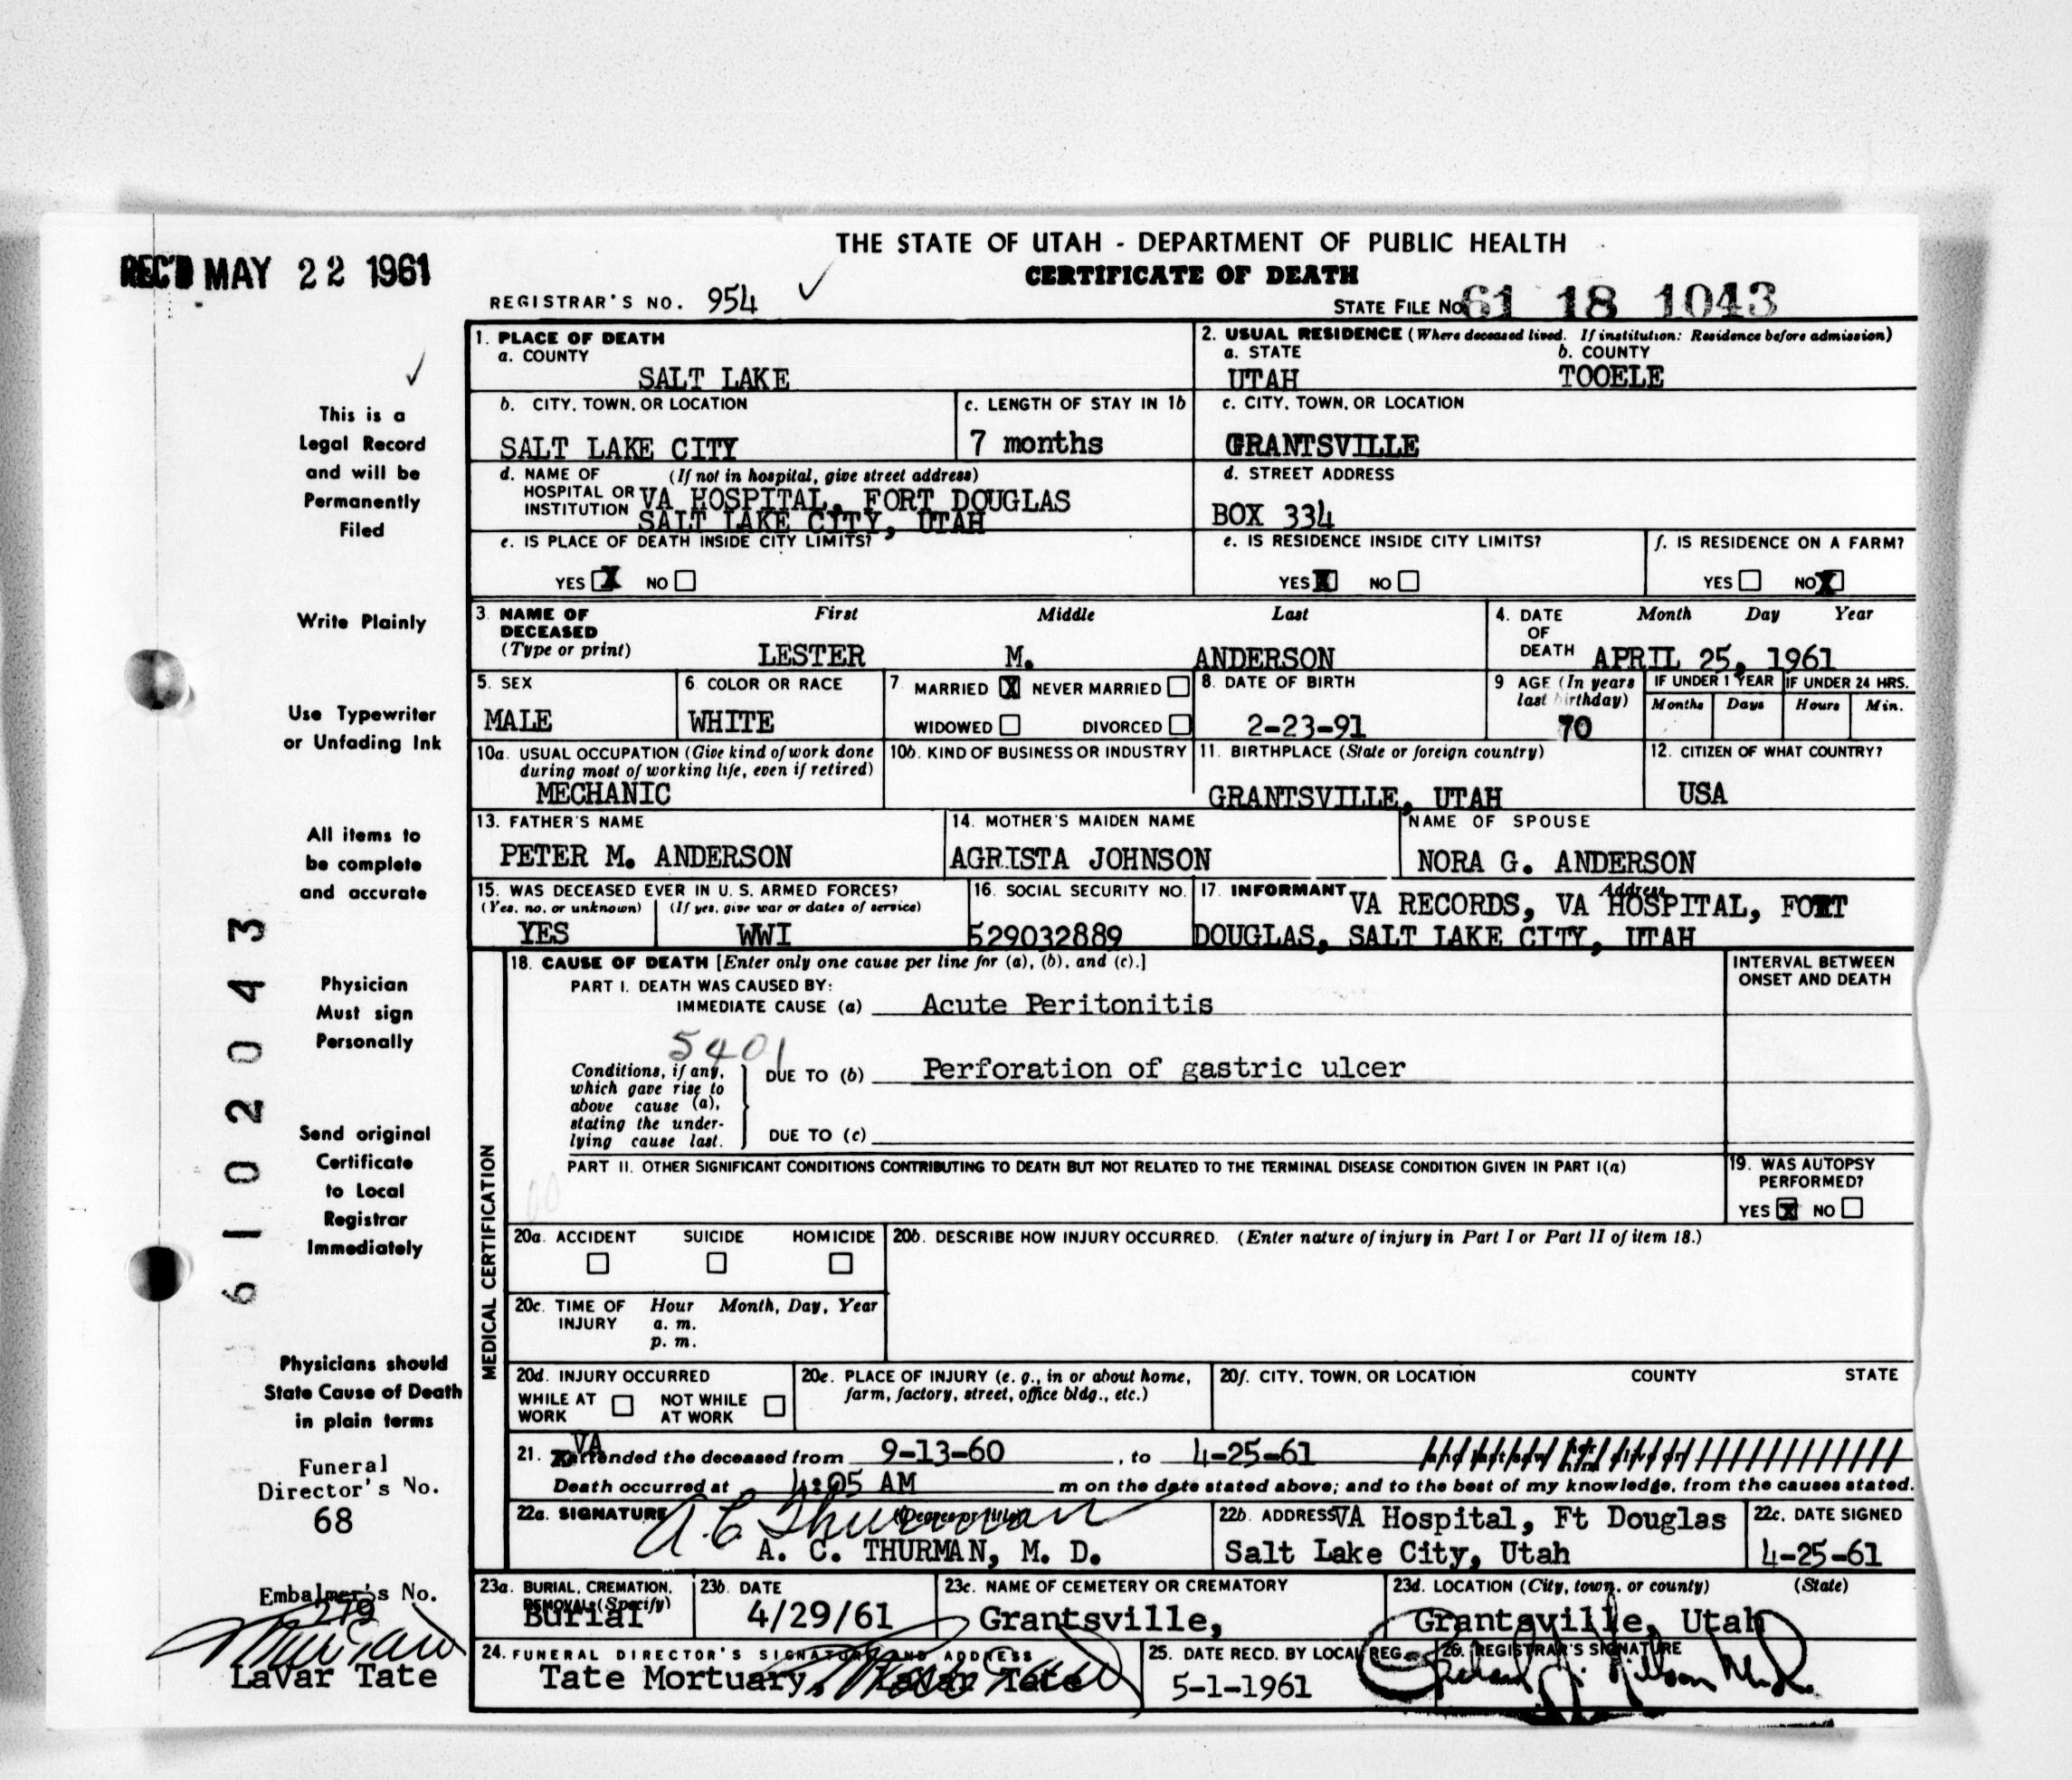 THE STATE OF UTAH - DEPARTMENT OF PUBLIC HEALTH
CERTIFICATE OF DEATH
REC'D MAY 22 1961
REGISTRAR'S NO. 954
STATE FILE No 61 18 1043
This is a
Legal Record
and will be
Permanently
Filed
Write Plainly
Use Typewriter
or Unfading Ink
All items to
be complete
and accurate
Physician
Must sign
Personally
Send original
Certificate
to Local
Registrar
Immediately
Physicians should
State Cause of Death
in plain terms
Funeral
Director's No.
68
Embalmer's No.
279
LaVar Tate
6102043
1. PLACE OF DEATH
a. COUNTY
SALT LAKE
2. USUAL RESIDENCE (Where deceased lived. If institution: Residence before admission)
a. STATE b. COUNTY
UTAH TOOELE
b. CITY, TOWN, OR LOCATION
SALT LAKE CITY
c. LENGTH OF STAY IN 1b
7 months
c. CITY, TOWN, OR LOCATION
GRANTSVILLE
d. NAME OF (If not in hospital, give street address)
HOSPITAL OR
INSTITUTION
VA HOSPITAL, FORT DOUGLAS
SALT LAKE CITY, UTAH
d. STREET ADDRESS
BOX 334
e. IS PLACE OF DEATH INSIDE CITY LIMITS?
YES X NO
e. IS RESIDENCE INSIDE CITY LIMITS?
YES X NO
f. IS RESIDENCE ON A FARM?
YES NO X
3. NAME OF First Middle Last
DECEASED
(Type or print)
LESTER M. ANDERSON
4. DATE Month Day Year
OF
DEATH APRIL 25, 1961
5. SEX
MALE
6. COLOR OR RACE
WHITE
7. MARRIED X NEVER MARRIED
WIDOWED DIVORCED
8. DATE OF BIRTH
2-23-91
9 AGE (In years
last birthday)
70
IF UNDER 1 YEAR
Months Days
IF UNDER 24 HRS.
Hours Min.
10a. USUAL OCCUPATION (Give kind of work done
during most of working life, even if retired)
MECHANIC
10b. KIND OF BUSINESS OR INDUSTRY
11. BIRTHPLACE (State or foreign country)
GRANTSVILLE, UTAH
12. CITIZEN OF WHAT COUNTRY?
USA
13. FATHER'S NAME
PETER M. ANDERSON
14. MOTHER'S MAIDEN NAME
AGRISTA JOHNSON
NAME OF SPOUSE
NORA G. ANDERSON
15. WAS DECEASED EVER IN U. S. ARMED FORCES?
(Yes, no, or unknown) (If yes, give war or dates of service)
YES WWI
16. SOCIAL SECURITY NO.
529032889
17. INFORMANT Address
VA RECORDS, VA HOSPITAL, FORT
DOUGLAS, SALT LAKE CITY, UTAH
MEDICAL CERTIFICATION
18. CAUSE OF DEATH [Enter only one cause per line for (a), (b), and (c).]
PART I. DEATH WAS CAUSED BY:
IMMEDIATE CAUSE (a) Acute Peritonitis
INTERVAL BETWEEN
ONSET AND DEATH
5401
Conditions, if any,
which gave rise to
above cause (a),
stating the under-
lying cause last.
DUE TO (b) Perforation of gastric ulcer
DUE TO (c)
PART II. OTHER SIGNIFICANT CONDITIONS CONTRIBUTING TO DEATH BUT NOT RELATED TO THE TERMINAL DISEASE CONDITION GIVEN IN PART I(a)
19. WAS AUTOPSY
PERFORMED?
YES X NO
20a. ACCIDENT SUICIDE HOMICIDE
20b. DESCRIBE HOW INJURY OCCURRED. (Enter nature of injury in Part I or Part II of item 18.)
20c. TIME OF Hour Month, Day, Year
INJURY a. m.
p. m.
20d. INJURY OCCURRED
WHILE AT NOT WHILE
WORK AT WORK
20e. PLACE OF INJURY (e. g., in or about home,
farm, factory, street, office bldg., etc.)
20f. CITY, TOWN, OR LOCATION COUNTY STATE
21. VA attended the deceased from 9-13-60, to 4-25-61
Death occurred at 4:05 AM m on the date stated above; and to the best of my knowledge, from the causes stated.
22a. SIGNATURE (Degree or title)
A. C. Thurman
A. C. THURMAN, M. D.
22b. ADDRESS VA Hospital, Ft Douglas
Salt Lake City, Utah
22c. DATE SIGNED
4-25-61
23a. BURIAL, CREMATION,
REMOVAL (Specify)
Burial
23b. DATE
4/29/61
23c. NAME OF CEMETERY OR CREMATORY
Grantsville,
23d. LOCATION (City, town, or county) (State)
Grantsville, Utah
24. FUNERAL DIRECTOR'S SIGNATURE AND ADDRESS
Tate Mortuary, LaVar Tate
25. DATE RECD. BY LOCAL REG.
5-1-1961
26. REGISTRAR'S SIGNATURE